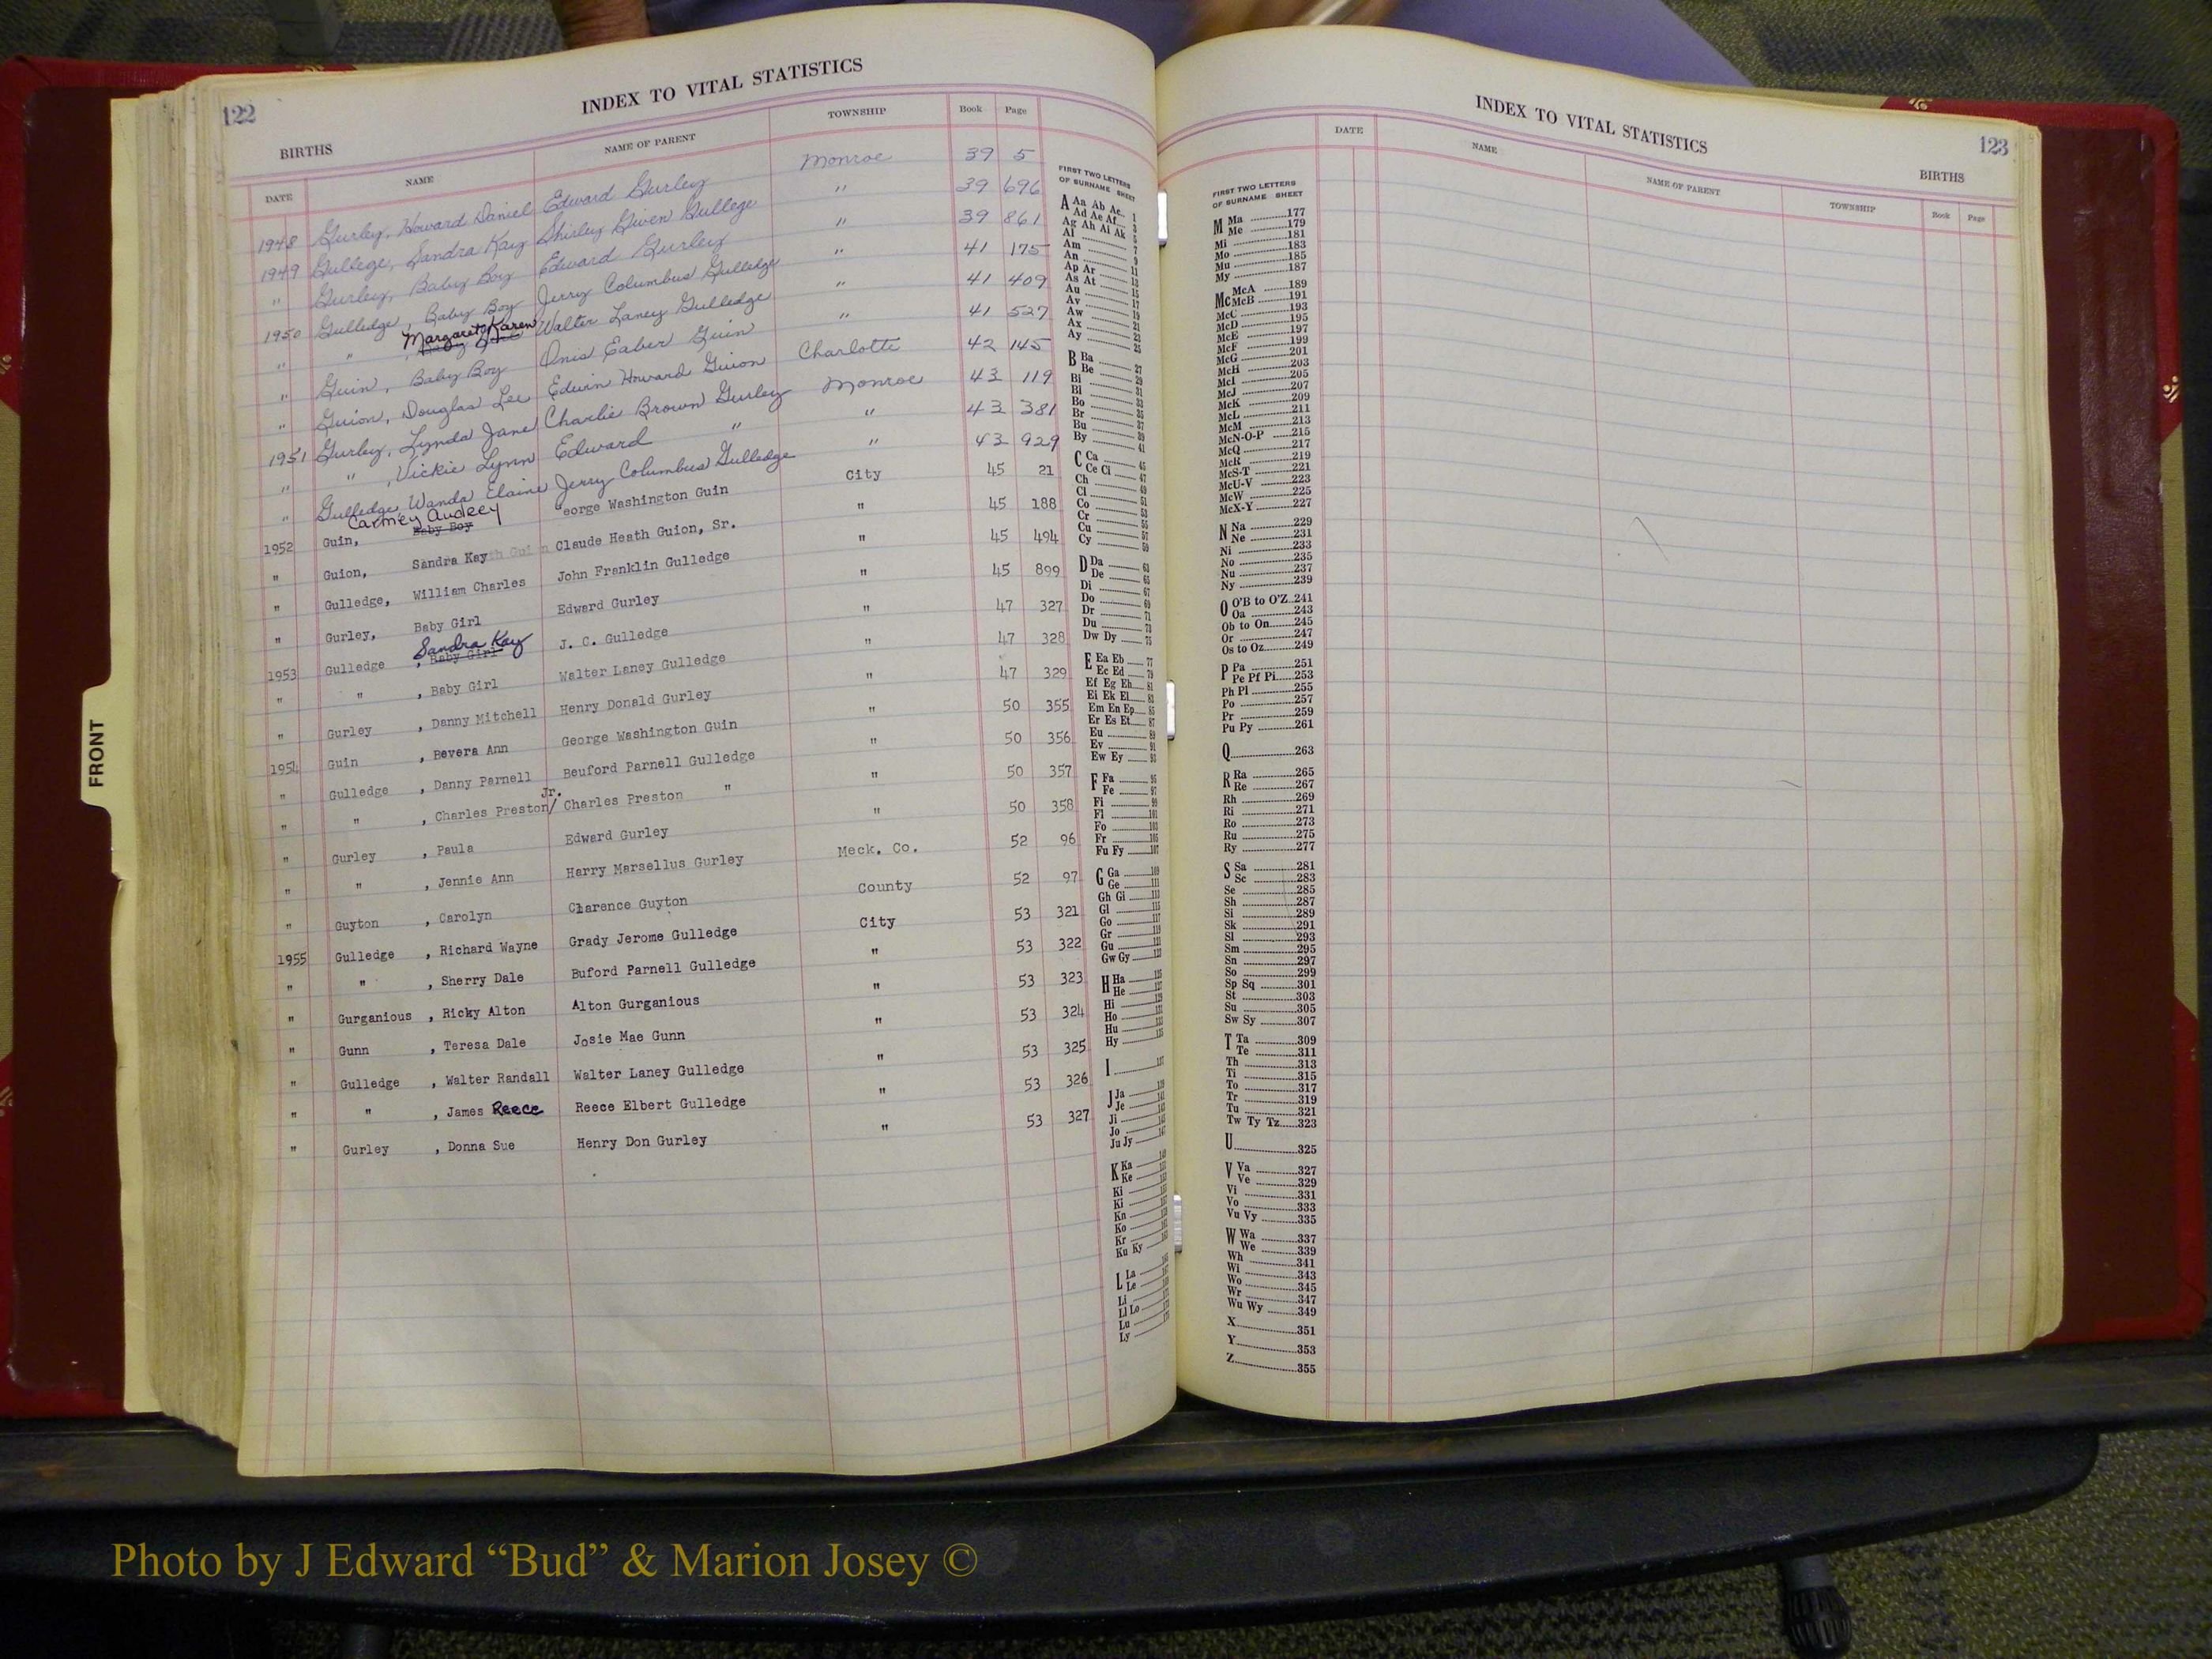 122
INDEX TO VITAL STATISTICS
BIRTHS
DATE NAME NAME OF PARENT TOWNSHIP Book Page
1948 Gurley, Howard Daniel Edward Gurley Monroe 39 5
1949 Gullege, Sandra Kay Shirley Given Gullege " 39 696
" Gurley, Baby Boy Edward Gurley " 39 861
1950 Gulledge, Baby Boy Jerry Columbus Gulledge " 41 175
" " Margaret Karen Walter Laney Gulledge " 41 409
" Guin, Baby Boy Onis Eaber Guin " 41 527
" Guion, Douglas Lee Edwin Howard Guion Charlotte 42 145
1951 Gurley, Lynda Jane Charlie Brown Gurley Monroe 43 119
" " , Vickie Lynn Edward " " 43 381
" Gulledge, Wanda Elaine Jerry Columbus Gulledge " 43 929
Carmey Audrey
1952 Guin, Baby Boy George Washington Guin City 45 21
" Guion, Sandra Kay Claude Heath Guion, Sr. " 45 188
" Gulledge, William Charles John Franklin Gulledge " 45 494
" Gurley, Baby Girl Edward Gurley " 45 899
Sandra Kay
1953 Gulledge , Baby Girl J. C. Gulledge " 47 327
" " , Baby Girl Walter Laney Gulledge " 47 328
" Gurley , Danny Mitchell Henry Donald Gurley " 47 329
1954 Guin , Bevera Ann George Washington Guin " 50 355
" Gulledge , Danny Parnell Beuford Parnell Gulledge " 50 356
" " , Charles Preston/ Jr. Charles Preston " " 50 357
" Gurley , Paula Edward Gurley " 50 358
" " , Jennie Ann Harry Marsellus Gurley Meck. Co. 52 96
" Guyton , Carolyn Clarence Guyton County 52 97
1955 Gulledge , Richard Wayne Grady Jerome Gulledge City 53 321
" " , Sherry Dale Buford Parnell Gulledge " 53 322
" Gurganious , Ricky Alton Alton Gurganious " 53 323
" Gunn , Teresa Dale Josie Mae Gunn " 53 324
" Gulledge , Walter Randall Walter Laney Gulledge " 53 325
" " , James Reece Reece Elbert Gulledge " 53 326
" Gurley , Donna Sue Henry Don Gurley " 53 327
FRONT
FIRST TWO LETTERS
OF SURNAME SHEET
A Aa Ab Ac
Ad Ae Af
Ag Ah Ai Ak
Al
Am
An
Ap Ar
As At
Au
Av
Aw
Ax
Ay
B Ba
Be
Bi
Bl
Bo
Br
Bu
By
C Ca
Ce Ci
Ch
Cl
Co
Cr
Cu
Cy
D Da
De
Di
Do
Dr
Du
Dw Dy
E Ea Eb
Ec Ed
Ef Eg Eh
Ei Ek El
Em En Ep
Er Es Et
Eu
Ev
Ew Ey
F Fa
Fe
Fi
Fl
Fo
Fr
Fu Fy
G Ga
Ge
Gh Gi
Gl
Go
Gr
Gu
Gw Gy
H Ha
He
Hi
Ho
Hu
Hy
I
J Ja
Je
Ji
Jo
Ju Jy
K Ka
Ke
Ki
Kn
Ko
Kr
Ku Ky
L La
Le
Li
Ll Lo
Lu
Ly
INDEX TO VITAL STATISTICS
123
BIRTHS
DATE NAME NAME OF PARENT TOWNSHIP Book Page
FIRST TWO LETTERS
OF SURNAME SHEET
M Ma 177
Me 179
Mi 181
Mo 183
Mu 185
My 187
Mc McA 189
McB 191
McC 193
McD 195
McE 197
McF 199
McG 201
McH 203
McI 205
McJ 207
McK 209
McL 211
McM 213
McN-O-P 215
McQ 217
McR 219
McS-T 221
McU-V 223
McW 225
McX-Y 227
N Na 229
Ne 231
Ni 233
No 235
Nu 237
Ny 239
O O'B to O'Z 241
Oa 243
Ob to On 245
Or 247
Os to Oz 249
P Pa 251
Pe Pf Pi 253
Ph Pl 255
Po 257
Pr 259
Pu Py 261
Q 263
R Ra 265
Re 267
Rh 269
Ri 271
Ro 273
Ru 275
Ry 277
S Sa 281
Sc 283
Se 285
Sh 287
Si 289
Sk 291
Sl 293
Sm 295
Sn 297
So 299
Sp Sq 301
St 303
Su 305
Sw Sy 307
T Ta 309
Te 311
Th 313
Ti 315
To 317
Tr 319
Tu 321
Tw Ty Tz 323
U 325
V Va 327
Ve 329
Vi 331
Vo 333
Vu Vy 335
W Wa 337
We 339
Wh 341
Wi 343
Wo 345
Wr 347
Wu Wy 349
X 351
Y 353
Z 355
Photo by J Edward “Bud” & Marion Josey ©